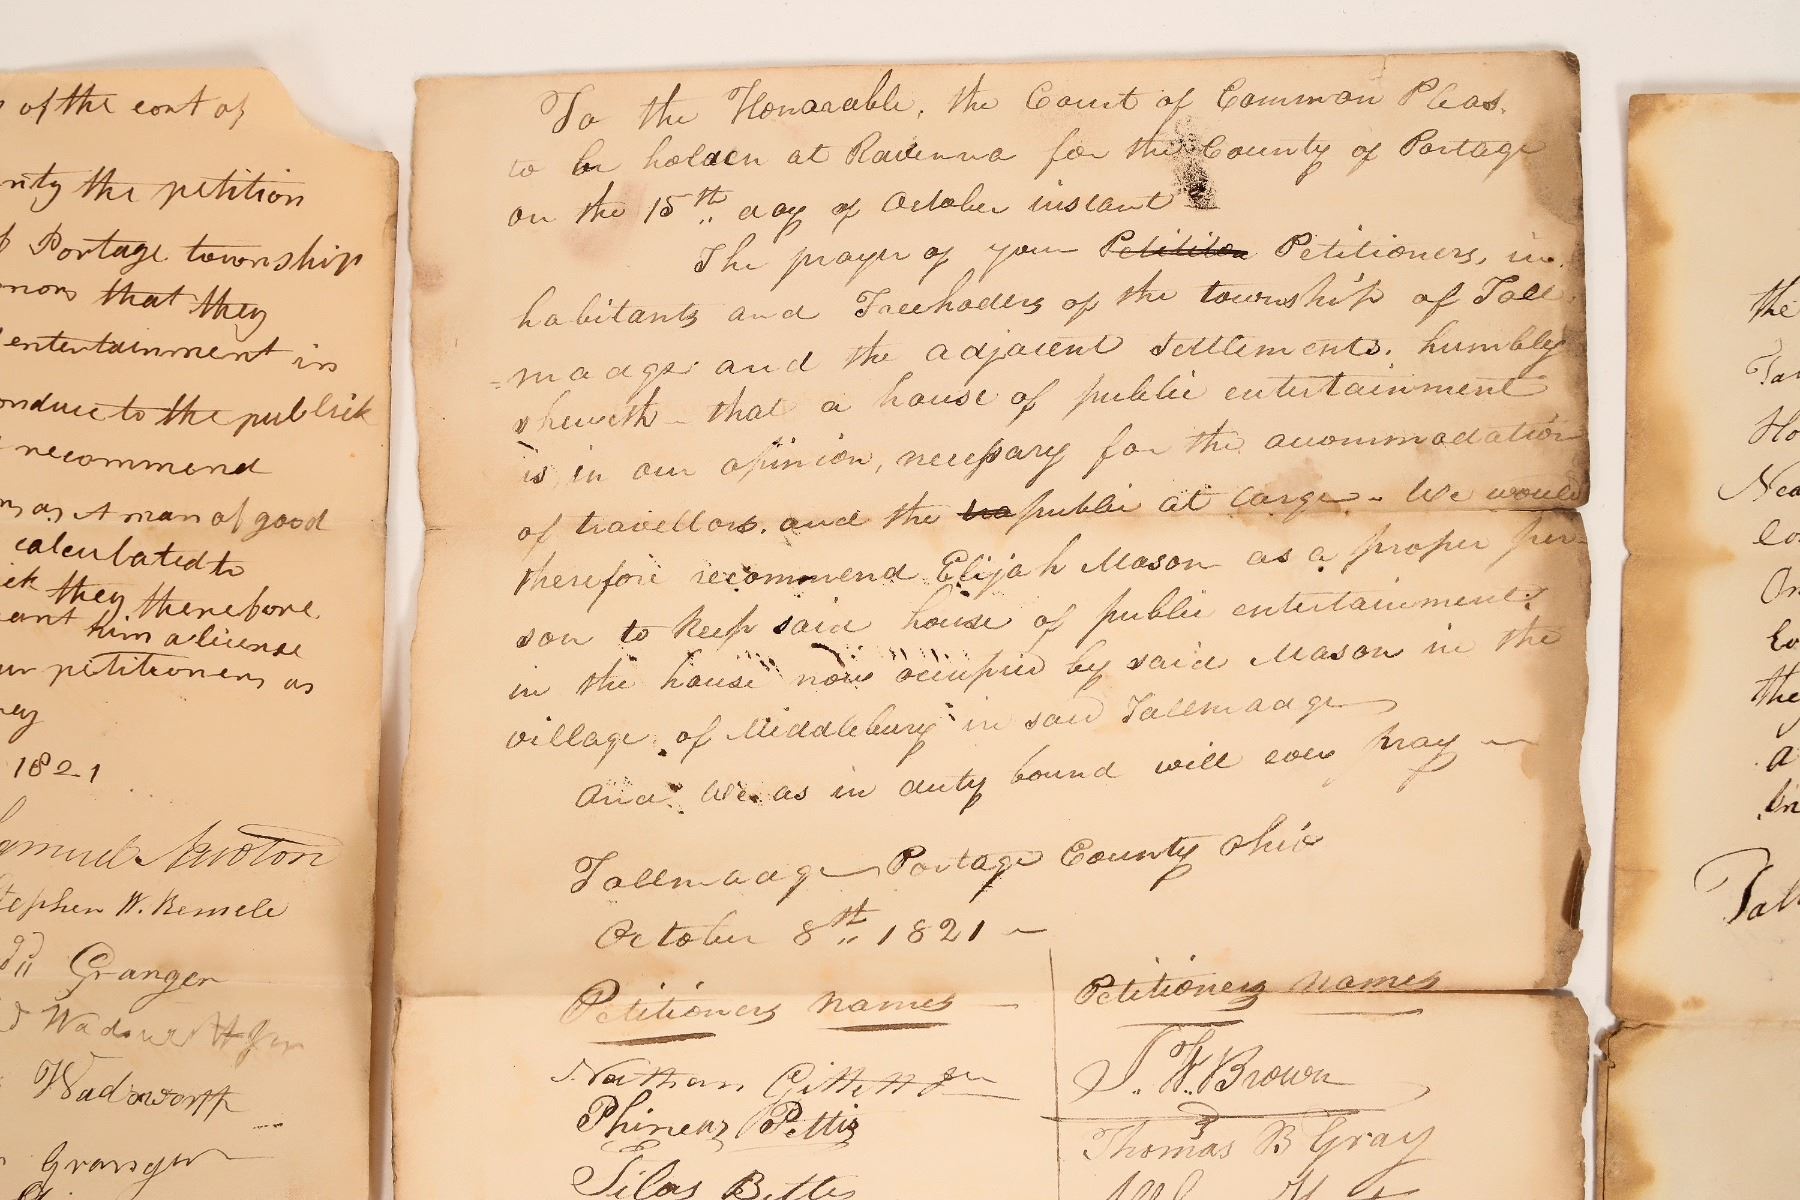 of the cont of
the petition
Portage township
that they
entertainment in
conduce to the publick
recommend
as A man of good
calculated to
they therefore
him a license
petitioners as
1821
Samuel Newton
Stephen W. Bemele
Granger
Wadsworth Jun
Wadsworth
Granger
To the Honorable, the Court of Common Pleas.
to be holden at Ravenna for the County of Portage
on the 15th day of October instant
The prayer of your Petition Petitioners, in
habitants and Freehoders of the township of Tall
=madge and the adjacent settlements, humbly
sheweth - that a house of public entertainment
is, in our opinion, necessary for the accommodation
of travellors, and the tra public at large - We would
therefore recommend Elijah Mason as a proper per=
son to keep said house of public entertainment
in the house now occupied by said Mason in the
village of Middlebury in said Tallmadge
And We as in duty bound will ever pray
Tallmadge Portage County Ohio
October 8th 1821 -
Petitioners names
Nathan Gillett Jun
Phineas Pettis
Silas Bettes
Petitioners names
J. W. Brown
Thomas B Gray
the
Ho
the
Tall